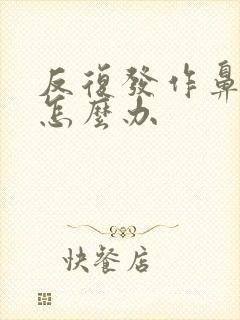 反復發作鼻
怎麼办
快餐店